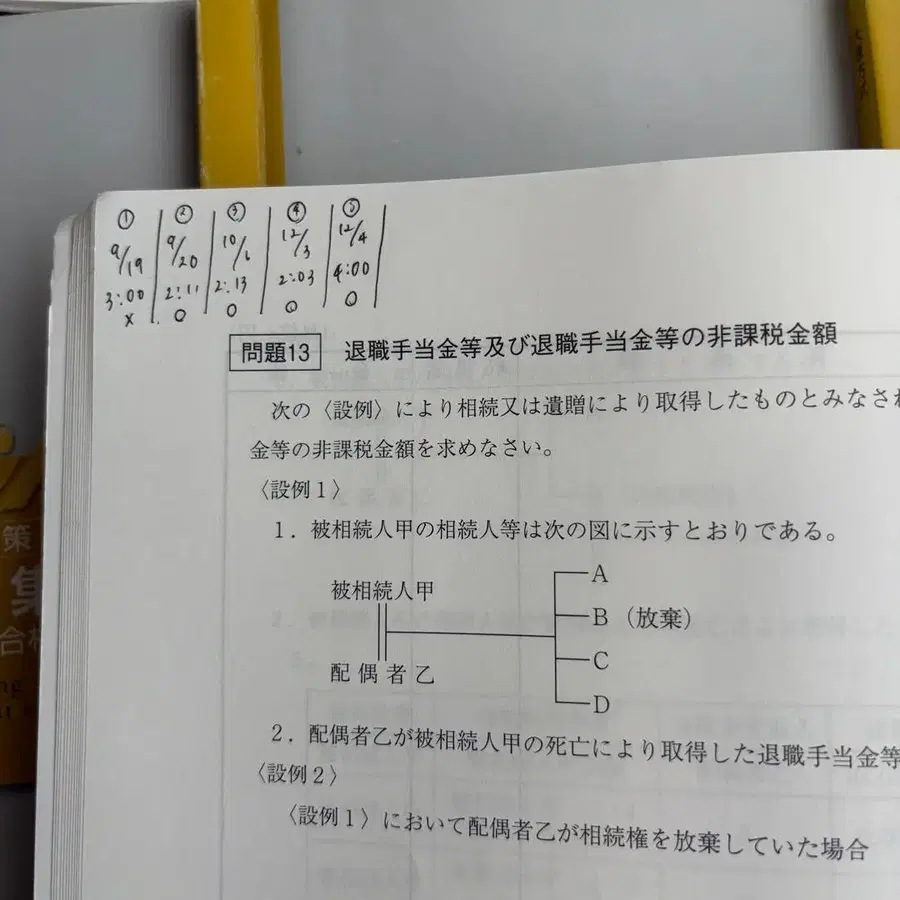 ① ② ③ ④ ⑤
9/19 9/20 10/6 12/3 12/4
3:00 2:11 2:13 2:03 4:00
× ○ ○ ○ ○
問題13 退職手当金等及び退職手当金等の非課税金額
次の〈設例〉により相続又は遺贈により取得したものとみなされ
金等の非課税金額を求めなさい。
〈設例1〉
1．被相続人甲の相続人等は次の図に示すとおりである。
被相続人甲
配偶者乙
A
B（放棄）
C
D
2．配偶者乙が被相続人甲の死亡により取得した退職手当金等
〈設例2〉
〈設例1〉において配偶者乙が相続権を放棄していた場合
策
集
合格